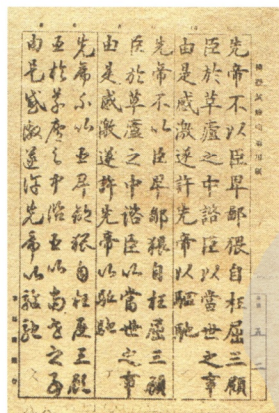 先帝不以臣卑鄙猥自枉屈三顧
臣於草廬之中諮臣以當世之事
由是感激遂許先帝以驅馳
先帝不以臣卑鄙猥自枉屈三顧
臣於草廬之中諮臣以當世之事
由是感激遂許先帝以驅馳
先帝不以臣卑鄙猥自枉屈三顧
臣於草廬之中諮臣以當世之事
由是感激遂許先帝以驅馳
五二